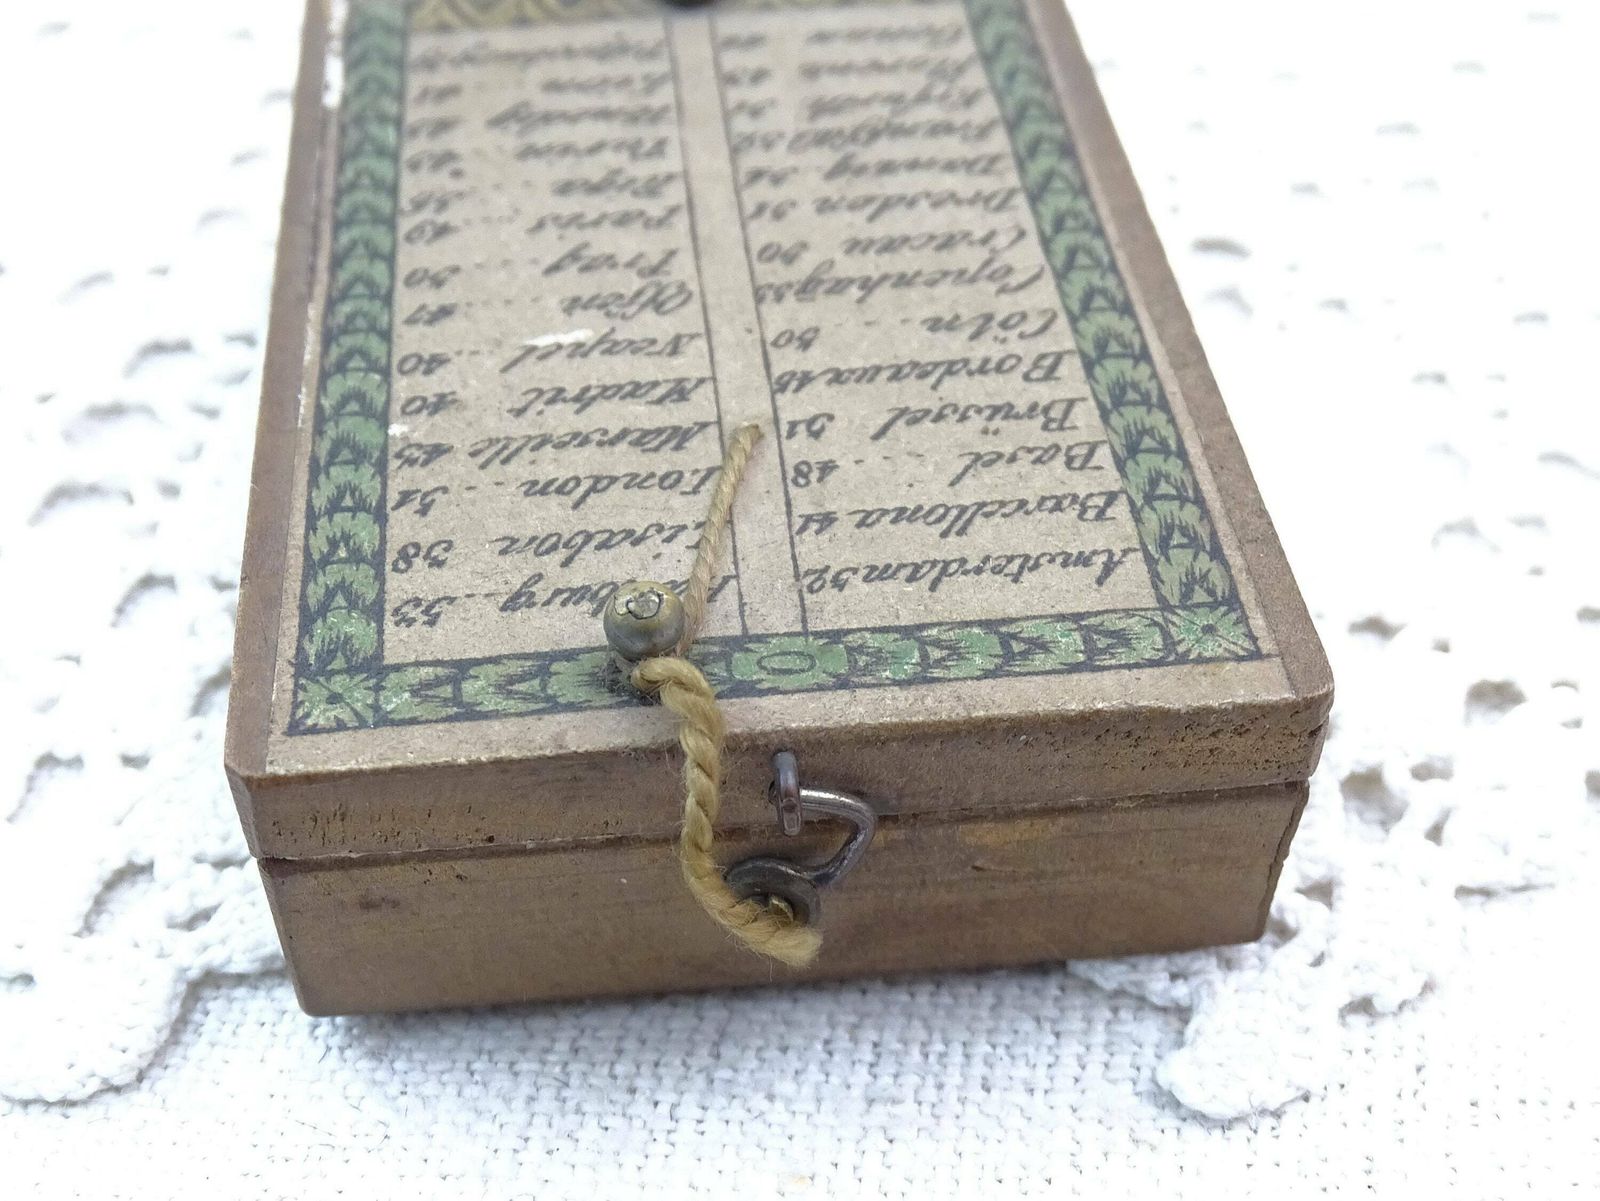 Amsterdam 52
Barcellona 41
Basel .... 48
Brüssel 51
Bordeaux 45
Cöln .... 50
Copenhag 55
Cracau 50
Dresden 51
Danzig 54
burg .. 53
Lisabon 38
London .. 51
Marseille 43
Madrit 40
Neapel .. 40
Ofen .... 47
Prag .... 50
Paris ... 49
Riga
Turin
Venedig
Wien